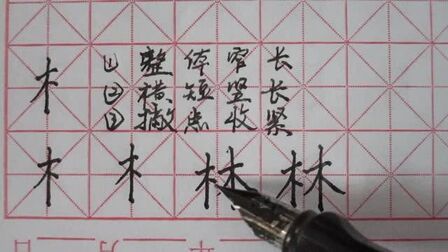 ① 整体窄长
木 ② 横短竖长
③ 撇点收紧
木 木 林 林